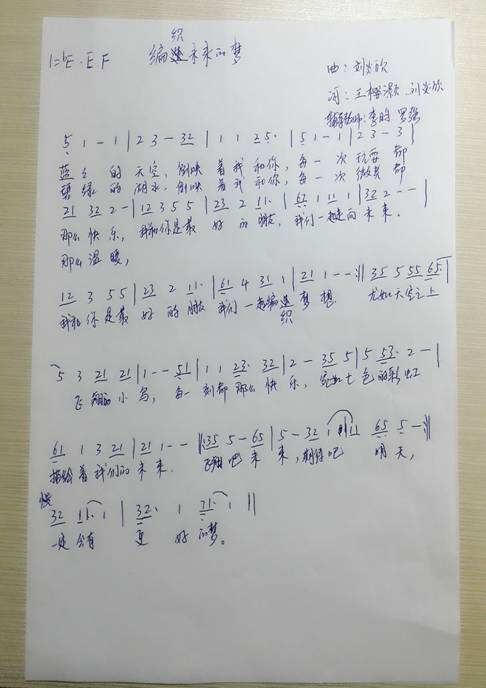 织
1=♭E·E F 编造未来的梦
曲:刘炎欣
词:王樱潞 刘炎欣
李昀
5 1 - 1 | 2 3 - 32 | 1 1 25· | 5 1 - 1 | 2 3 - 3 |
蓝色的天空,倒映着我和你,每一次玩耍都
碧绿的湖水,倒映着我和你,每一次微笑都
21 32 2 - | 12 3 5 5 | 23 2 11· | 61 1 11 1 | 32 2 - - |
那么快乐,我和你是最好的,我们一起走向未来。
那么温暖,
12 3 55 | 23 2 11· | 61 4 31 1 | 21 1 - - :| 35 5 55 65·
我和你是最好的 我们一起编造梦想 尤如天空之上
织
5 3 21 21 | 1 - - 51 | 1 1 23· 32 | 2 - 35 5 | 5 53· 2 - |
飞翔的小鸟,每一刻都那么快乐,宛如七色的彩虹
61 1 3 21 | 21 1 - - | 35 5 - 65 | 5 - 32 1 11 65 5 - |
描绘着我们的未来. 飞翔吧未来,期待吧 明天,
慢
32 11· 1 | 32· 1 21· 1 ||
一定会有更好的梦。